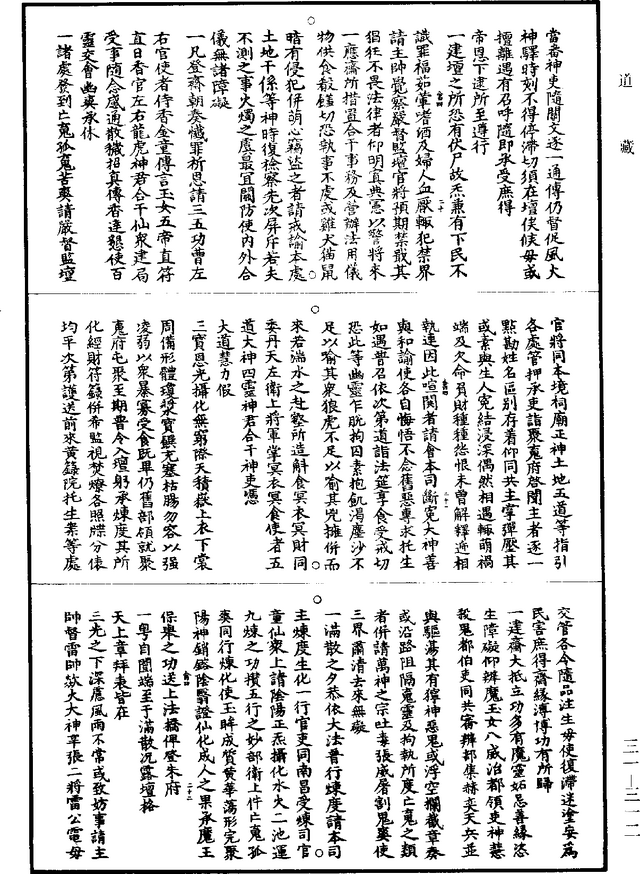 道藏
當畨神吏隨關文逐一通傳仍督促風火
神驛時刻不得停滯切須在壇俟候毋或
擅離遇有召呼隨即承受庶得
帝恩下逮所至遵行
一建壇之所恐有伏尸故炁兼有下民不
識罪福如葷嗜酒及婦人血厭輙犯禁界
請主帥覺察嚴督監壇官將預期禁戢其
猖狂不畏法律者仰明寘典憲以警將來
一應齋所措置合干事務及營辦法用儀
物供食殽饉切恐執事不虔或雞犬猫鼠
暗有侵犯併萌心竊盜之者請戒諭本處
土地干係等神時復檢察先次屏斥若夫
不測之事火燭之虞最宜關防使內外合
儀無諸障礙
一凡登齋朝奏懺罪祈恩請三五功曹左
右官使者侍香金童傳言玉女五帝直符
直日香官左右龍虎神君合干仙衆建局
受事隨念感通散穢招真傳香達懇使百
靈交會幽爽承休
一諸處發到亡魂孤魂苦爽請嚴督監壇
官將同本境祠廟正神土地五道等指引
各處管押承吏詣聚魔府啓閱主者逐一
點勘姓名區别存着仰同共主掌彈壓其
或素與生人寃結浸深偶然相遇輙萌禍
端及欠命負財種種怨恨未曾解釋近相
執連因此喧鬧者請會本司斷寃大神善
與和諭使各自悔悟不念舊惡專求托生
如遇普召依次第道詣法筵享食受戒切
恐此等幽靈乍脫拘囚素抱飢渴塵沙不
足以喻其衆狼虎不足以喻其兇擁併而
來若湍水之赴壑所造斛食冥衣冥財同
委丹天左衛上將軍掌冥衣冥食使者五
道大神四靈神君合干神吏憑
大道慧力假
三寶恩光攝化無窮際天積嶽上衣下裳
周備形體瓊漿寶饌充塞枯腸勿容以强
凌弱以衆暴寡受食既畢仍舊部領就聚
魔府屯聚至期普令入壇躬承煉度其所
化經財符籙併希監視焚燎各照牒分俵
均平次第護送前來黄籙院托生案等處
交管各令隨品注生毋使復滯迷塗妄爲
民害庶得齋緣溥博功有所歸
一建齋大抵立功多有魔靈妬忌善緣恣
生障礙仰辨魔玉女八威治都領吏神慧
我鬼都伯吏同共審辨部集赫奕天兵並
與驅蕩其有獰神惡鬼或浮空攔截章奏
或沿路阻隔魂靈及拘執所度亡魂之類
者併請萬神之宗吐毒張威屠割鬼爽使
三界肅清去來無礙
一滿散之夕恭依大法普行煉度請本司
主煉度生化一行官吏同南昌受煉司官
童仙衆上請陰陽正炁攝化水火二池運
九煉之功攢五行之妙部衛上件亡魂孤
爽同行煉化使玉眸成質黄華蕩形完聚
陽神銷鎔陰翳證仙化成人之果承魔王
保舉之功送上法橋俾登朱府
一粤自聞端至于滿散沉露壇格
天上章拜表皆在
三光之下深慮風雨不常或致妨事請主
帥督雷帥歘火大神辛張二將雷公電母
三一—三一二